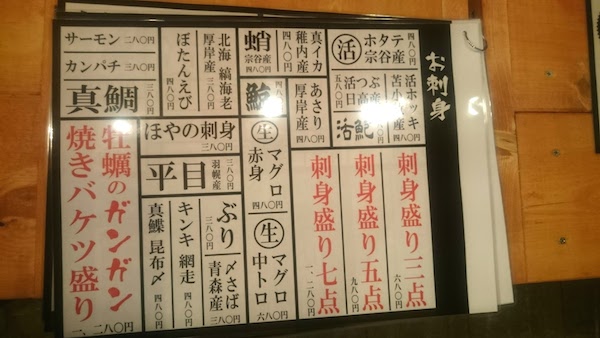 お刺身
活 ホタテ
宗谷産
四八〇円
活ホッキ
苫小牧産
四八〇円
活つぶ
日高産
五八〇円
活鮑
刺身盛り三点
六八〇円
刺身盛り五点
九八〇円
刺身盛り七点
一、二八〇円
真イカ
稚内産
四八〇円
あさり
厚岸産
蛸
宗谷産
四八〇円
生 マグロ
赤身
四八〇円
生 マグロ
中トロ
六八〇円
北海縞海老
厚岸産
三八〇円
ぼたんえび
四八〇円
サーモン 二八〇円
カンパチ 三八〇円
真鯛
三八〇円
ほやの刺身
三八〇円
平目
羽幌産
三八〇円
ぶり
三八〇円
〆さば
青森産
四八〇円
キンキ 網走
四八〇円
真鰈 昆布〆
四八〇円
牡蠣のガンガン
焼きバケツ盛り
一、二八〇円